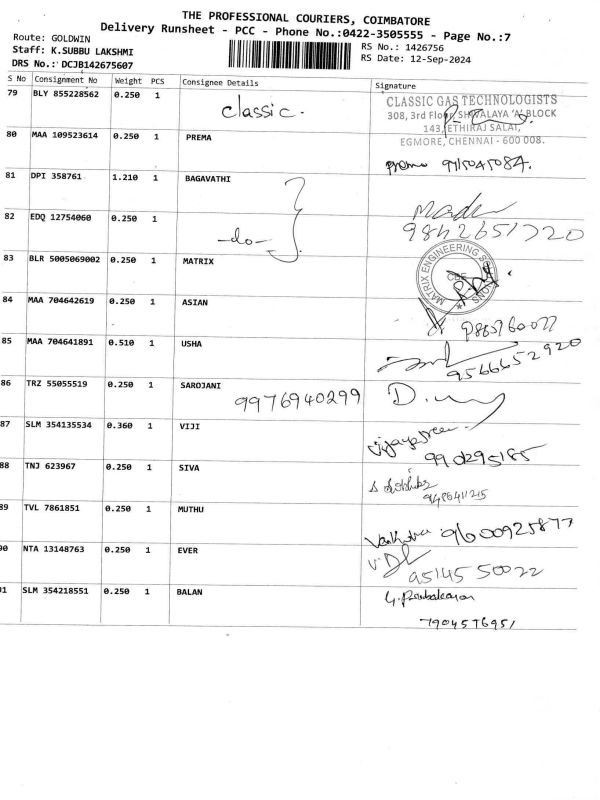 THE PROFESSIONAL COURIERS, COIMBATORE
Delivery Runsheet - PCC - Phone No.:0422-3505555 - Page No.:7
Route: GOLDWIN
RS No.: 1426756
Staff: K.SUBBU LAKSHMI
RS Date: 12-Sep-2024
DRS No.: DCJB142675607
S No Consignment No Weight PCS Consignee Details Signature
79 BLY 855228562 0.250 1 classic.
CLASSIC GAS TECHNOLOGISTS
308, 3rd Floor, SHIVALAYA 'A' BLOCK
143, ETHIRAJ SALAI,
EGMORE, CHENNAI - 600 008.
80 MAA 109523614 0.250 1 PREMA
prema
81 DPI 358761 1.210 1 BAGAVATHI
82 EDQ 12754060 0.250 1 -do-
9842651720
83 BLR 5005069002 0.250 1 MATRIX
MATRIX ENGINEERING
CBE
84 MAA 704642619 0.250 1 ASIAN
85 MAA 704641891 0.510 1 USHA
9566652920
86 TRZ 55055519 0.250 1 SAROJANI
9976940299
87 SLM 354135534 0.360 1 VIJI
88 TNJ 623967 0.250 1 SIVA
89 TVL 7861851 0.250 1 MUTHU
9600925877
90 NTA 13148763 0.250 1 EVER
9514550022
91 SLM 354218551 0.250 1 BALAN
7904576951